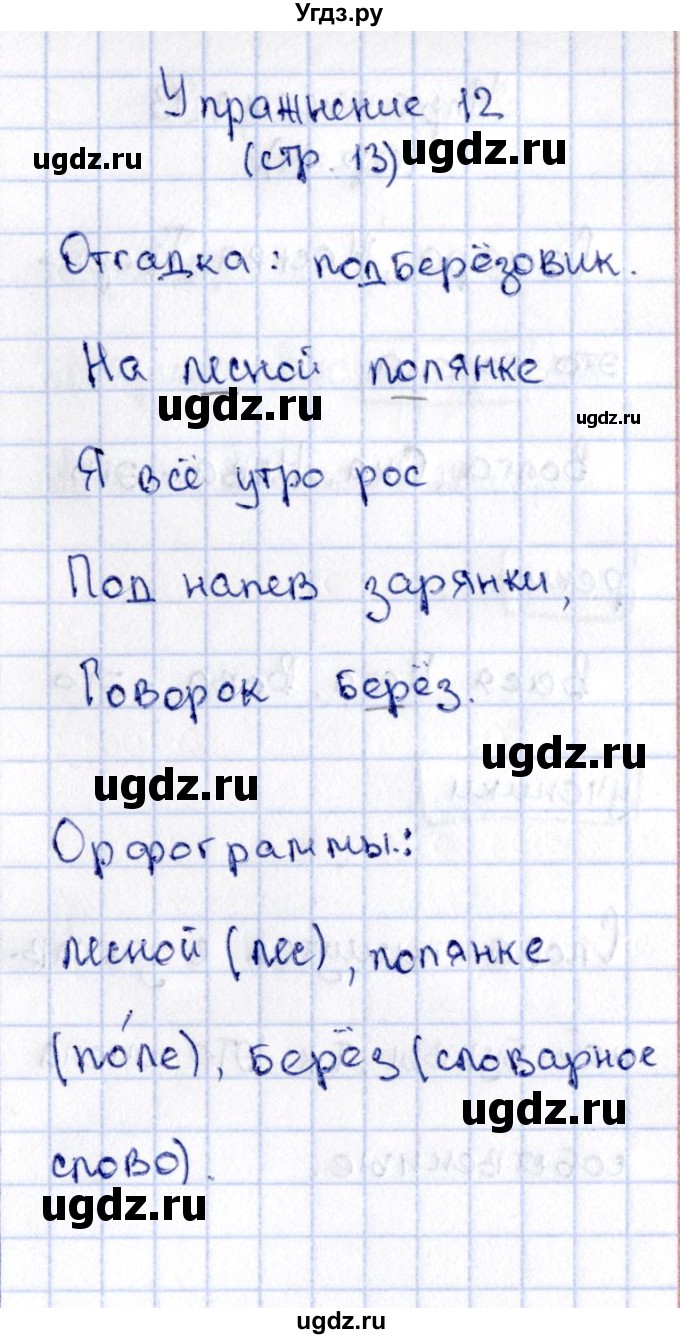 Угдз.ру
Упражнение 12
ugdz.ru
(стр. 13).
ugdz.ru
Отгадка: подберёзовик.
На лесной полянке
ugdz.ru
ugdz.ru
Я всё утро рос
Под напев зарянки,
Говорок берёз.
ugdz.ru
ugdz.ru
Орфограммы:
лесной (лес), полянке
(по́ле), берёз (словарное
ugdz.ru
слово).
ugdz.ru
ugdz.ru